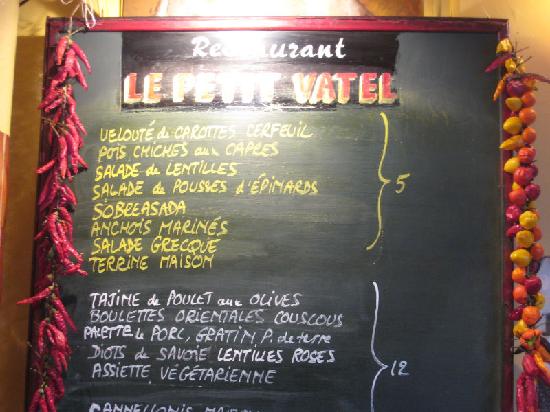 Restaurant
LE PETIT VATEL
VELOUTÉ de CAROTTES CERFEUIL
POIS CHICHES aux CAPRES
SALADE de LENTILLES
SALADE de POUSSES d'ÉPINARDS
SOBREASADA
ANCHOIS MARINÉS
SALADE GRECQUE
TERRINE MAISON
5
TAJINE de POULET aux OLIVES
BOULETTES ORIENTALES COUSCOUS
PALETTE de PORC, GRATIN P. de terre
DIOTS de SAVOIE LENTILLES ROSES
ASSIETTE VÉGÉTARIENNE
12
CANNELLONIS